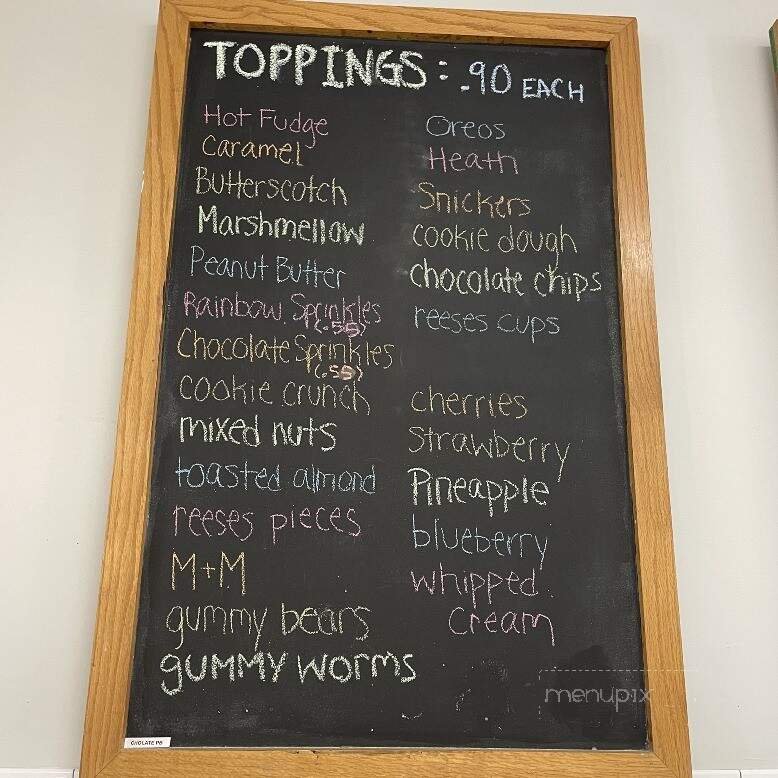 TOPPINGS: .90 EACH
Hot Fudge
Caramel
Butterscotch
Marshmellow
Peanut Butter
Rainbow Sprinkles
(.55)
Chocolate Sprinkles
(.55)
cookie crunch
mixed nuts
toasted almond
reeses pieces
M+M
gummy bears
gummy worms
Oreos
Heath
Snickers
cookie dough
chocolate chips
reeses cups
cherries
Strawberry
Pineapple
blueberry
whipped
cream
menupix